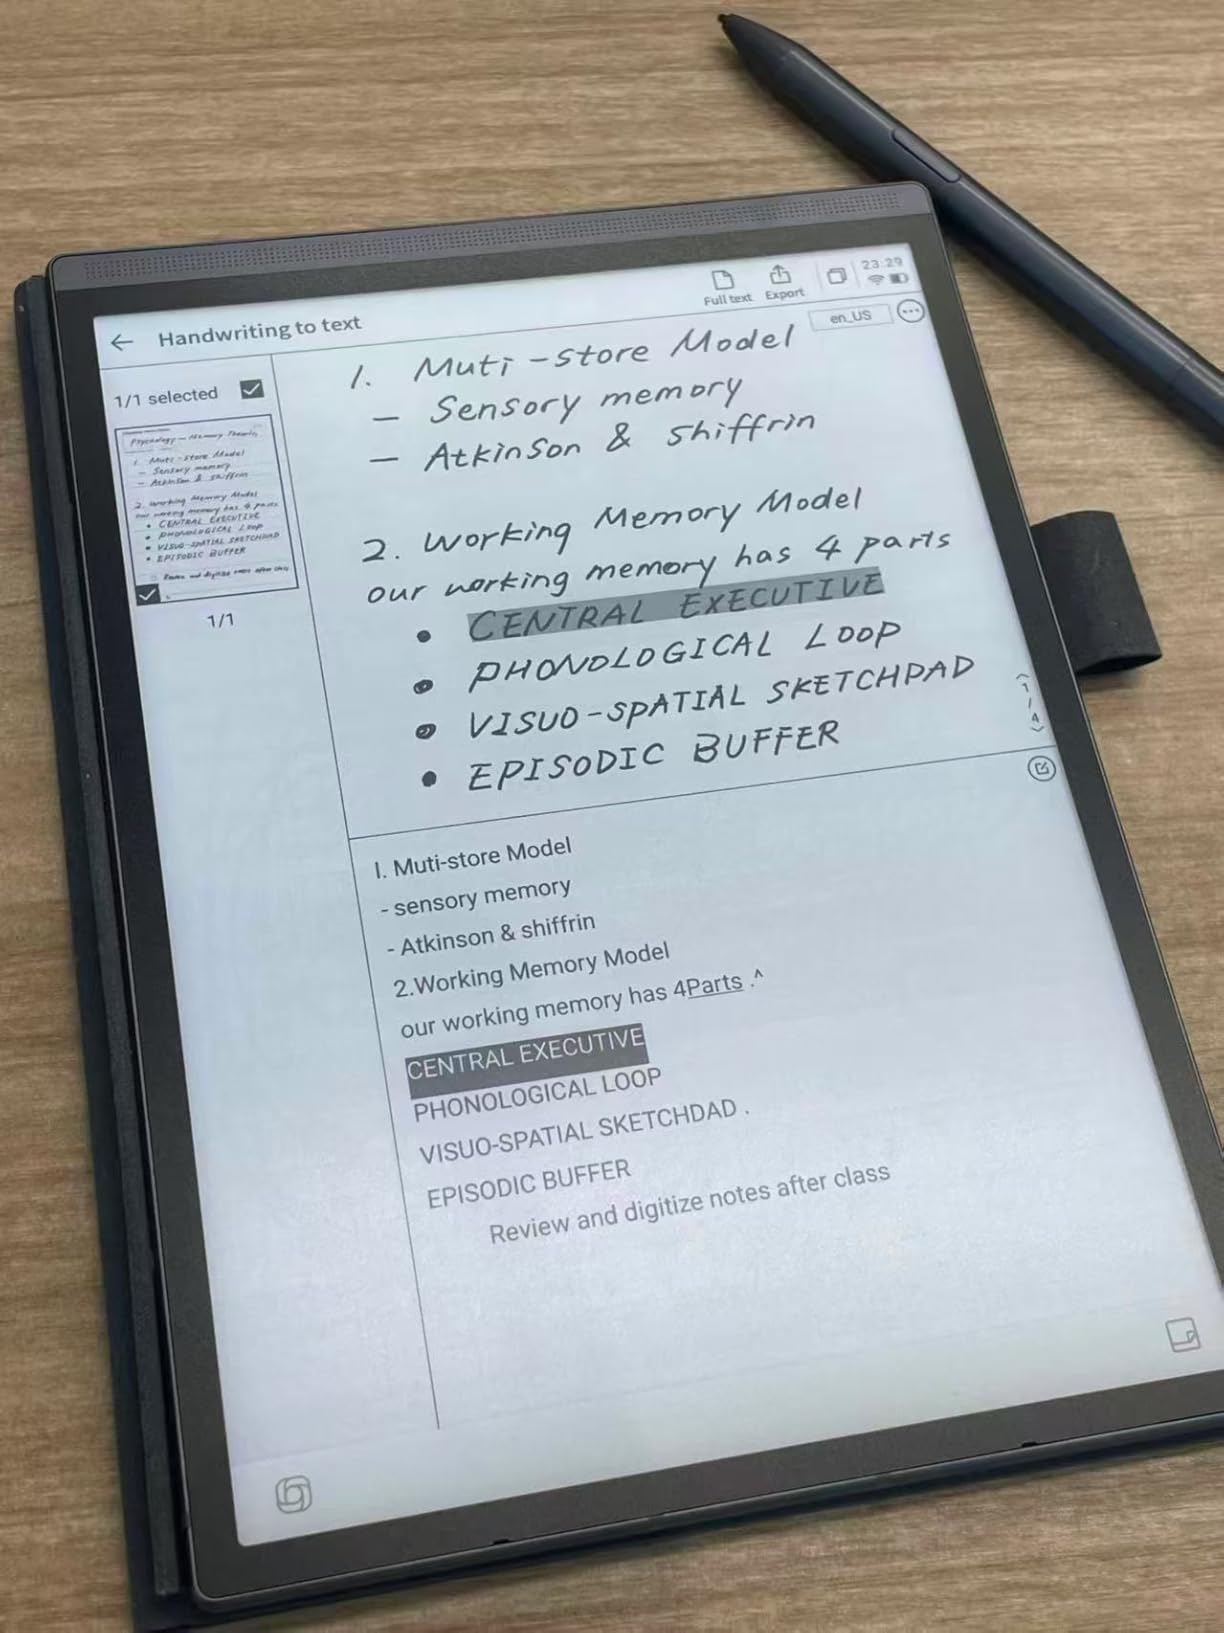 Handwriting to text
Full text
Export
23:29
en_US
1/1 selected
Psychology — Memory Theories
1. Muti-store Model
— Sensory memory
— Atkinson & Shiffrin
2. Working Memory Model
our working memory has 4 parts
• CENTRAL EXECUTIVE
• PHONOLOGICAL LOOP
• VISUO-SPATIAL SKETCHPAD
• EPISODIC BUFFER
Review and digitize notes after class
1/1
1. Muti-store Model
— Sensory memory
— Atkinson & Shiffrin
2. Working Memory Model
our working memory has 4 parts
• CENTRAL EXECUTIVE
• PHONOLOGICAL LOOP
• VISUO-SPATIAL SKETCHPAD
• EPISODIC BUFFER
1/4
I. Muti-store Model
- sensory memory
- Atkinson & shiffrin
2.Working Memory Model
our working memory has 4Parts .^
CENTRAL EXECUTIVE
PHONOLOGICAL LOOP
VISUO-SPATIAL SKETCHDAD .
EPISODIC BUFFER
Review and digitize notes after class